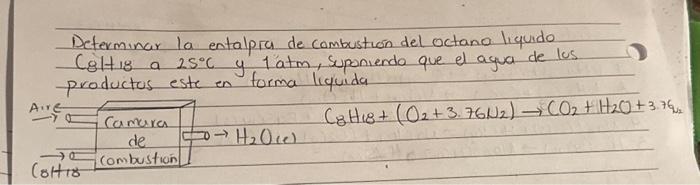 Determinar la entalpia de combustion del octano liquido
C8H18 a 25°C y 1 atm, suponiendo que el agua de los
productos este en forma liquida
Aire
Camara
de
combustion
C8H18
→ H2O(l)
C8H18 + (O2 + 3.76N2) → CO2 + H2O + 3.76N2